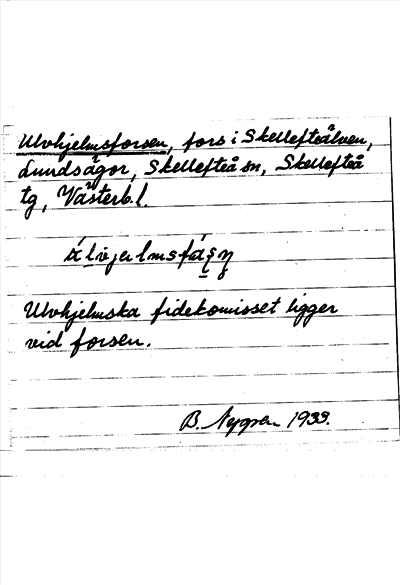 Ulvhjelmsforsen, fors i Skellefteälven,
Lundsågor, Skellefteå sn, Skellefteå
tg, Västerb. l.
Ulvhjelmska fidekomisset ligger
vid forsen.
B. Nygren 1933.